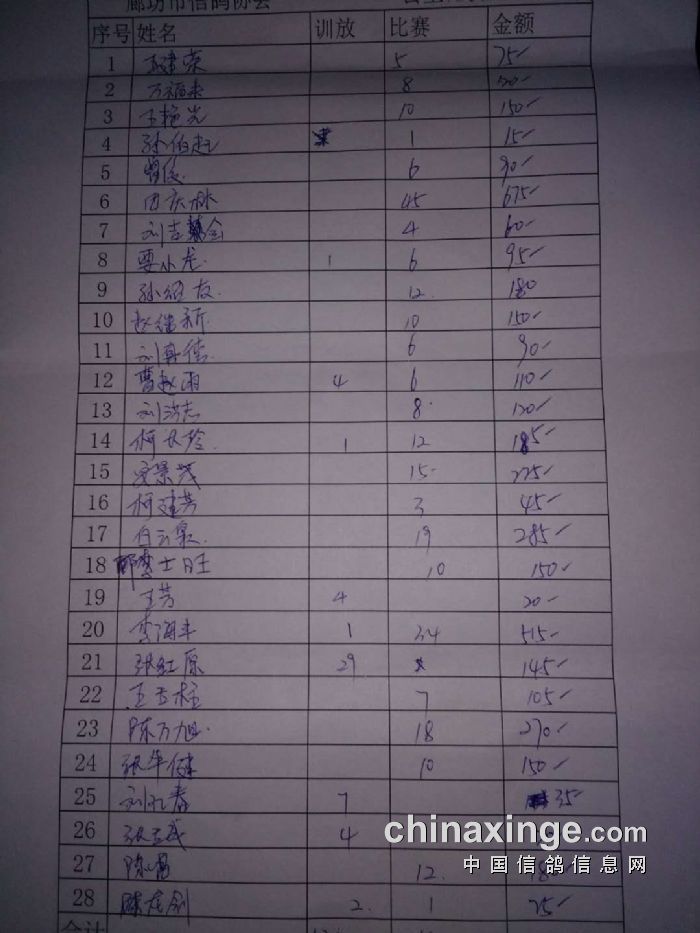 廊坊市信鸽协会
序号 姓名 训放 比赛 金额
1 王建荣 5 75
2 万福来 8
3 王艳光 10 150
4 孙伯起 1 15
5 曾俊 6 90
6 田庆林 45 675
7 刘吉会 4 60
8 要小龙 1 6 95
9 孙绍友 12 180
10 赵继新 10 150
11 刘再德 6 90
12 曹赵雨 4 6 110
13 刘洪志 8 120
14 柯长玲 1 12 185
15 安景茂 15 225
16 柯建芳 3 45
17 白云泉 19 285
18 李士旺 10 150
19 王芳 4 20
20 李海丰 1 34 515
21 张红原 29 145
22 王玉柱 7 105
23 陈万旭 18 270
24 张华健 10 150
25 刘孔春 7 35
26 张玉武 4
27 陈雷 12 180
28 陈龙剑 2 1 25
合计
chinaxinge.com
中国信鸽信息网